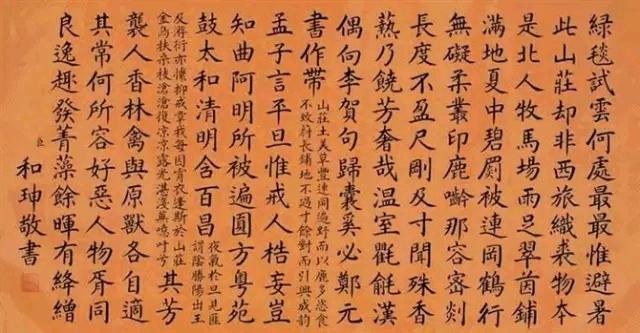 綠毯試雲何處最最惟避暑
此山莊却非西旅織裘物本
是北人牧馬場雨足翠茵鋪
滿地夏中碧罽被連岡鶴行
無礙柔叢印鹿齝那容密剡
長度不盈尺剛及寸聞殊香
爇乃饒芳奢哉溫室氍毹漢
偶句李賀句歸囊奚必鄭元
書作帶山莊土美草豐連岡遍野而以鹿多恣食
不致長鋪地不過寸餘對而引興成韻
孟子言平旦惟戒人梏妄豈
知曲阿明所被遍圓方粵苑
鼓太和清明含百昌夜氣於旦見匪
謂陰騰陽出王
及游衍亦懷抑戒章我每因宵衣逢斯於山莊
金烏扶桑枝滄滄復凉凉露光湛淺草噫吁兮
其芳
襲人香林禽與原獸各自適
其常何所容好惡人物胥同
良逸趣發菁藻餘暉有絳繒
臣和珅敬書